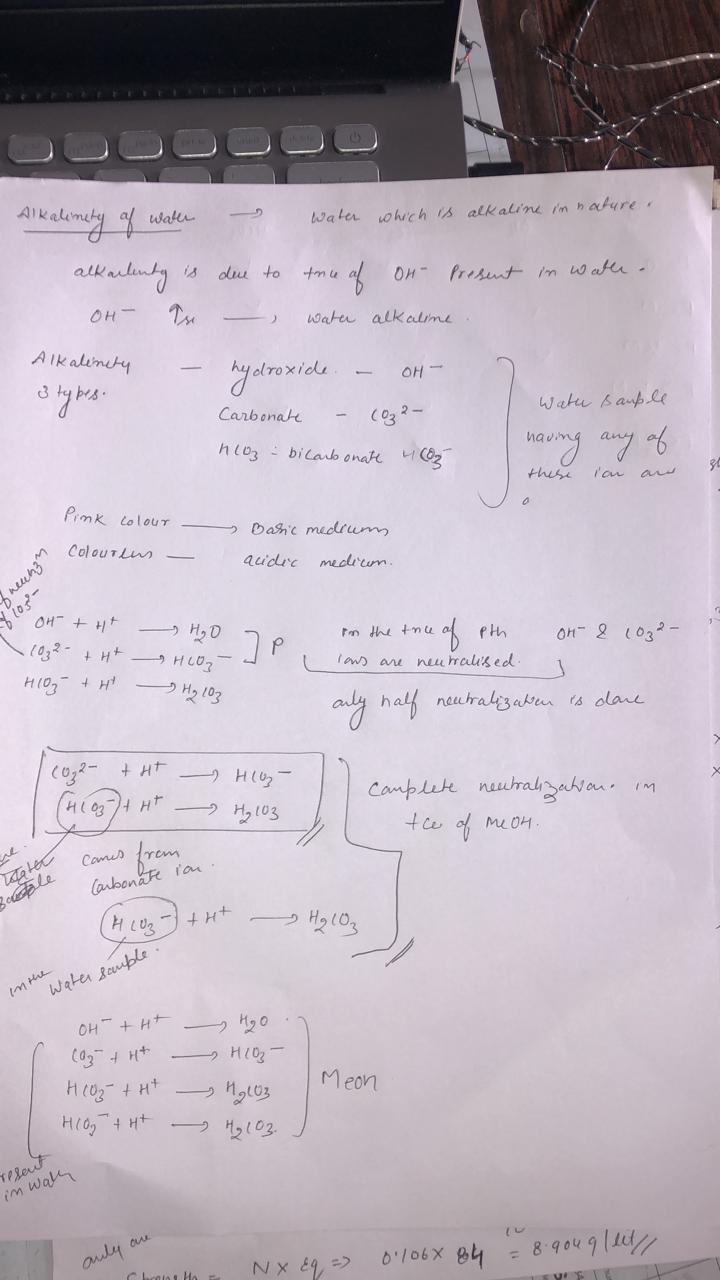 Alkalinety of water → water which is alkaline in nature.
alkarlinty is due to tnce of OH⁻ Present in water.
OH⁻ ↑se → water alkaline.
Alkalinety — hydroxide. — OH⁻
3 types.
Carbonate — CO3²⁻
HCO3 = bicarbonate HCO3⁻
water sample
having any of
these ion are
Pink colour → Basic medium
Colourless — acidic medium.
OH⁻ + H⁺ → H2O
CO3²⁻ + H⁺ → HCO3⁻ ] P
HCO3⁻ + H⁺ → H2CO3
In the tnce of pth OH⁻ & CO3²⁻
ions are neutralised.
only half neutralization is done
CO3²⁻ + H⁺ → HCO3⁻
HCO3⁻ + H⁺ → H2CO3
Complete neutralization. in
tce of MeOH.
comes from
Carbonate ion.
HCO3⁻ + H⁺ → H2CO3
in the
water sample.
OH⁻ + H⁺ → H2O
CO3⁻ + H⁺ → HCO3⁻
HCO3⁻ + H⁺ → H2CO3
HCO3⁻ + H⁺ → H2CO3.
MeOH
resent
in water
only are
N x Eq => 0.106 x 84 = 8.904 g/lit//